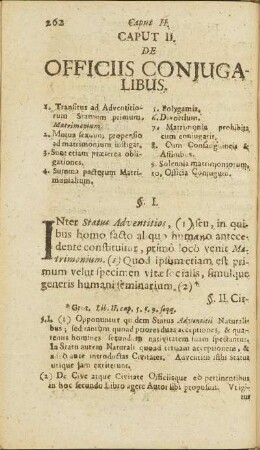 262 Caput II.
CAPUT II.
DE
OFFICIIS CONJUGA-
LIBUS.
1. Transitus ad Adventitio-
rium Statuum primum,
Matrimonium.
2. Mutua sexuum propensio
ad matrimonium instigat.
3. Sunt etiam præterea obli-
gationes.
4. Summa pactorum Matri-
monialium.
5. Polygamia.
6. Divortium.
7. Matrimonia prohibita
cum conjugatis.
8. Cum Consanguineis &
Affinibus.
9. Solennia matrimoniorum.
10. Officia Conjugum.
§. I.
INter Status Adventitios, (1) seu, in qui-
bus homo facto aliquo humano antece-
dente constituitur, primo loco venit Ma-
trimonium. (1) Quod ipsum etiam est pri-
mum velut specimen vitæ socialis, simulque
generis humani seminarium. (2)*
§. II. Cir-
* Grot. Lib. II. cap. 5. §. 9. seqq.
§. I. (1) Opponuntur quidem Status Adventitii Naturali-
bus; sed tantum quoad priores duas acceptiones, & qua-
tenus homines secundum nativitatem suam spectantur.
In Statu autem Naturali quoad tertiam acceptionem, &
ante introductas Civitates. Adventitii isthi status
utique jam extiterunt.
(2) De Cive atque Civitate Officiisque eo pertinentibus
in hoc secundo Libro agere Autori ibi propositum. Utigi-
tur